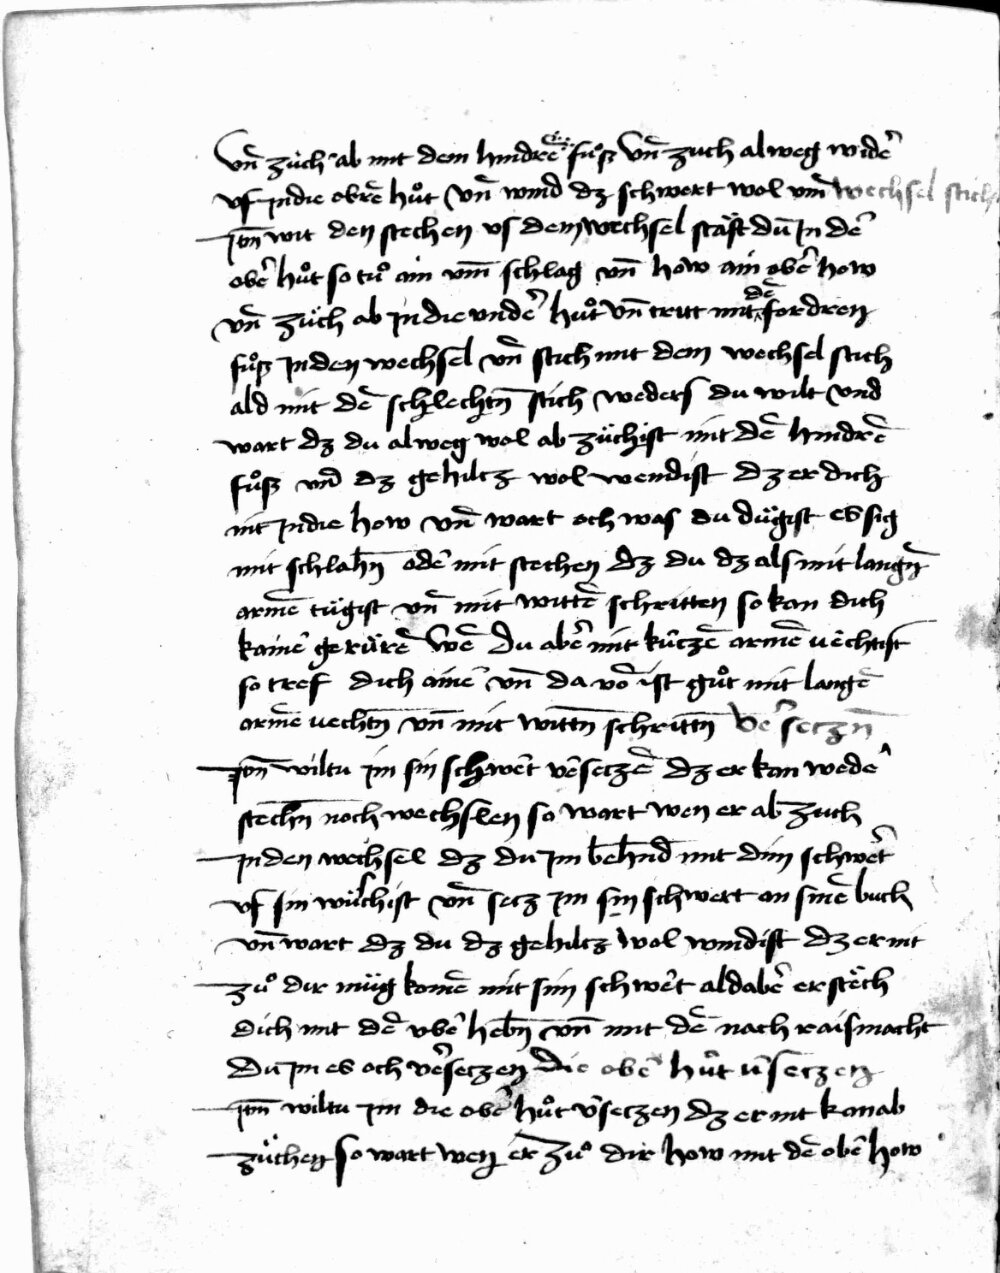 vn̄ zúch ab mit dem hindrē fuͦß vn̄ zuch alweg widē
vf in die obrē huͦt vn̄ wind dz schwert wol vm̄ wechsel stich
Itm̄ wit den stechen vs dem wechsel staͤst du In dē
obē huͦt so tuͦ ain vm̄ schlag vn̄ how ain obē how
vn̄ zúch ab in die vndē huͦt vn̄ tritt mit dē fordren
fuͦß in den wechsel vn̄ stich mit dem wechsel stich
ald mit dē schlechtn̄ stich weders du wilt vnd
wart dz du alweg wol ab zúchist mit dē hindrē
fuͦß vnd dz gehiltz wol wendist dz er dich
nit in die how vn̄ wart och was du dúgist es sig
mit schlahn̄ odē mit stechen dz du dz als mit langn̄
armē túgist vn̄ mit wittē schritten so kan dich
kainē gerúrē wē du abē mit kurczē armē vechtist
so tref dich ainē vn̄ da vō ist guͦt mit langē
armē vechtn̄ vn̄ mit wittn̄ schrittn̄ vē seczn̄
Itm̄ wiltu im sin schwēt vēseczē dz er kan wedē
stechn̄ noch wechslen so wart wen er ab zuch
in den wechsel dz du im behend mit dim schwēt
vf sin wúschist vn̄ secz im sin schwert an sinē buch
vn̄ wart dz du dz gehiltz wol windist dz er nit
zuͦ dir múg komē mit sim schwēt ald abē er stéch
dich mit dē vbē hebn̄ vn̄ mit dē nach rais macht
du im es och vēseczen die obē huͦt v̄seczen
Itm̄ wiltu im die obē huͦt v̄seczen dz er nit kan ab
zúchen so wart wen er zuͦ dir how mit dē obē how